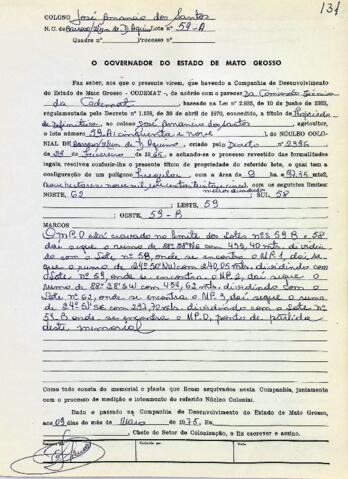 131
COLONO José Amancio dos Santos
N. C. de Barão/Mar de D'Aquino Lote nº 59-A
Quadra nº Processo nº
O GOVERNADOR DO ESTADO DE MATO GROSSO
Faz saber, aos que o presente virem, que havendo a Companhia de Desenvolvimento
do Estado de Mato Grosso - CODEMAT -, de acordo com o parecer Da Comissão Técnica
da Codemat, baseado na Lei nº 2.083, de 10 de junho de 1963,
regulamentada pelo Decreto nº 1.138, de 29 de abril de 1970, concedido, a título de Proprieda-
de Definitiva, ao colono José Amancio dos Santos, agricultor,
o lote número 59.A (cinquenta e nove), do NÚCLEO COLO-
NIAL DE D'Aquino, criado pelo Decreto nº 2396
de 28 de Fevereiro de 1965, e achando-se o processo revestido das formalidades
legais, resolveu conferir-lhe o presente título de propriedade do referido lote, o qual tem a
configuração de um polígono Irregular com a área de 9 ha 9235 mts2
com os seguintes limites:
NORTE, 62 ; SUL, 58
; LESTE, 59
; OESTE, 59-B
MARCOS
O MP.O está cravado no limite dos lotes nºs 59 B e 58
daí segue o rumo de 88º28'NE com 453,40 mts. dividin-
do com o lote nº 58, onde se encontra o MP.1, daí se-
gue o rumo de 24º50'NW com 240,05 mts. dividindo com
o lote nº 59, onde se encontra o MP.2, daí segue o
rumo de 88º28'SW com 452,62 mts. dividindo com o
lote nº 62, onde se encontra o MP.3, daí segue o rumo
de 24º51'SE com 237,70 mts. dividindo com o lote nº
59 B onde se encontra o MP.O, ponto de partida
deste memorial
Como tudo consta do memorial e planta que ficam arquivados nesta Companhia, juntamente
com o processo de medição e loteamento do referido Núcleo Colonial.
Dado e passado na Companhia de Desenvolvimento do Estado de Mato Grosso,
aos 09 dias do mês de Maio de 1975. Eu,
, Chefe do Setor de Colonização, o fiz escrever e assino.
Conferido por
Visto